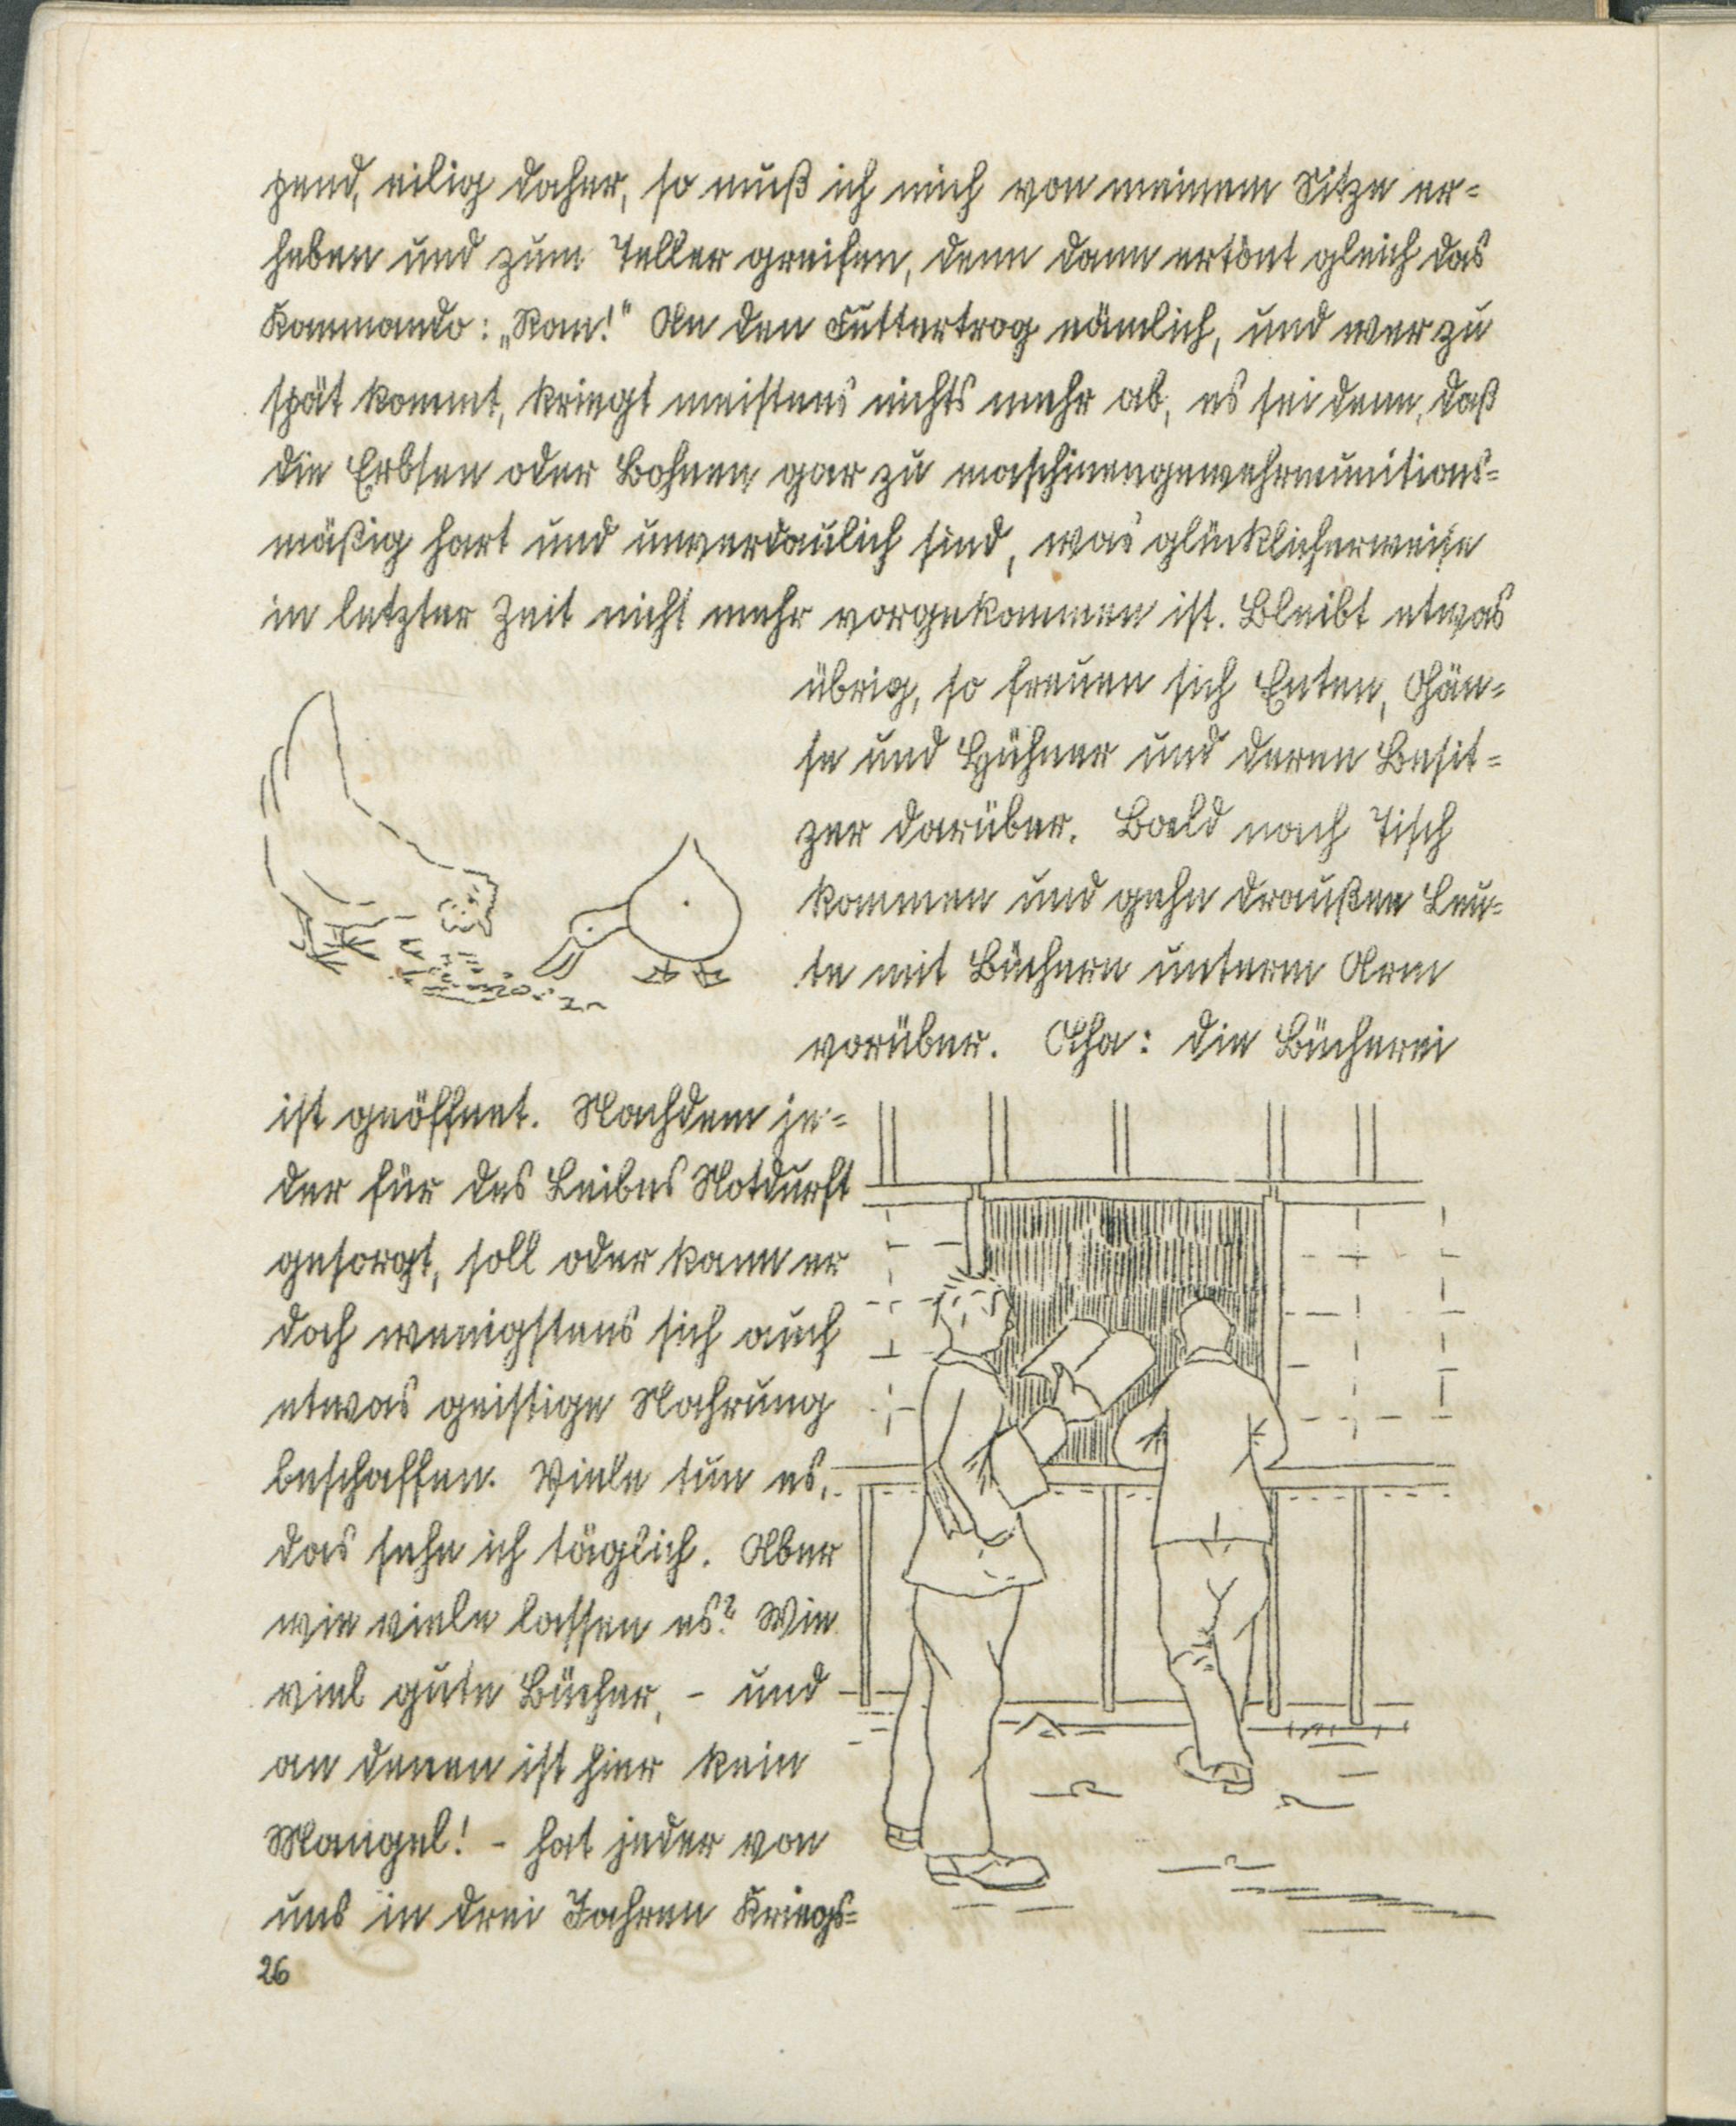 zend, eilig daher, so muß ich mich von meinem Sitze er=
heben und zum Teller greifen, denn dann ertönt gleich das
Kommando: „Ran!“ An den Futtertrog nämlich, und wer zu
spät kommt, kriegt meistens nichts mehr ab, es sei denn, daß
die Erbsen oder Bohnen gar zu maschinengewehrmunitions=
mäßig hart und unverdaulich sind, was glücklicherweise
in letzter Zeit nicht mehr vorgekommen ist. Bleibt etwas
übrig, so freuen sich Enten, Gän=
se und Hühner und deren Besit=
zer darüber. Bald nach Tisch
kommen und gehn draußen Leu=
te mit Büchern unterm Arm
vorüber. Aha: die Bücherei
ist geöffnet. Nachdem je=
der für des Leibes Notdurft
gesorgt, soll oder kann er
doch wenigstens sich auch
etwas geistige Nahrung
beschaffen. Viele tun es,
das sehe ich täglich. Aber
wie viele lassen es? Wie
viel gute Bücher, - und
an denen ist hier kein
Mangel! - hat jeder von
uns in drei Jahren Kriegs=
26